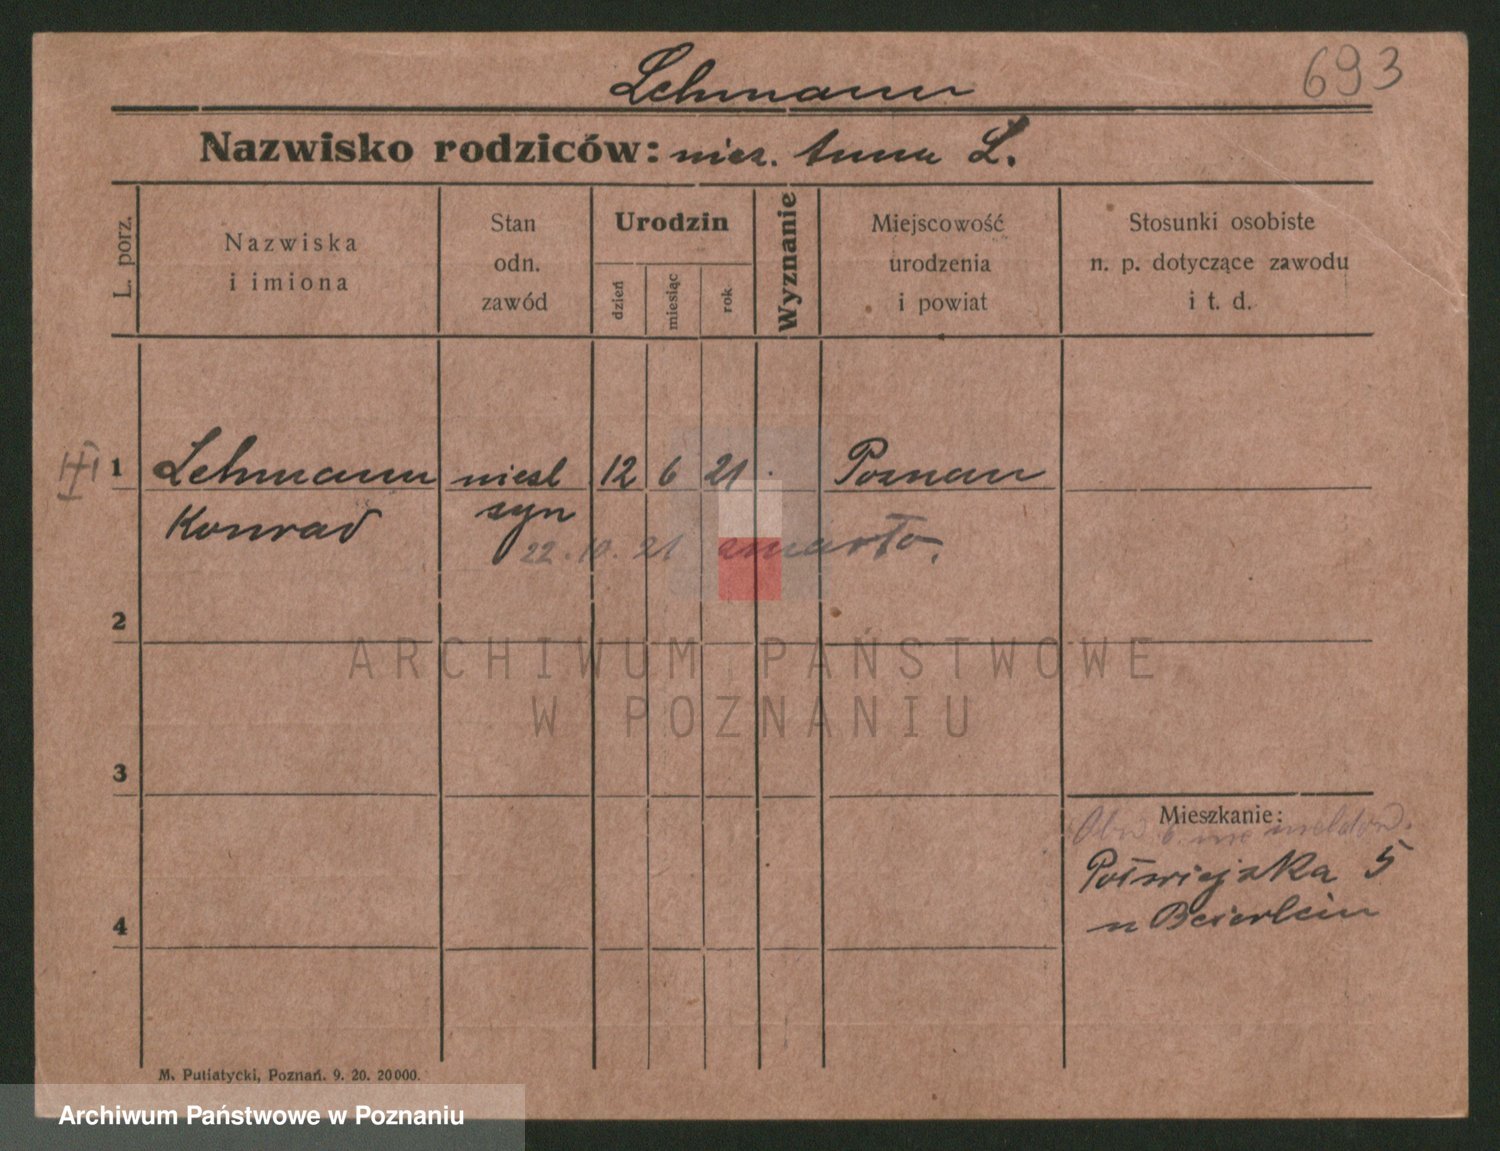 693
Lehmann
Nazwisko rodziców: niez. Anna L.
L. porz.
Nazwiska
i imiona
Stan
odn.
zawód
Urodzin
dzień
miesiąc
rok
Wyznanie
Miejscowość
urodzenia
i powiat
Stosunki osobiste
n. p. dotyczące zawodu
i t. d.
1 Lehmann niesl 12 6 21 Poznan
Konrad syn
22.10.21 zmarło.
2
ARCHIWUM PAŃSTWOWE
W POZNANIU
3
Mieszkanie:
Półwiejska 5
u Beierlein
4
M. Putiatycki, Poznań. 9. 20. 20000.
Archiwum Państwowe w Poznaniu